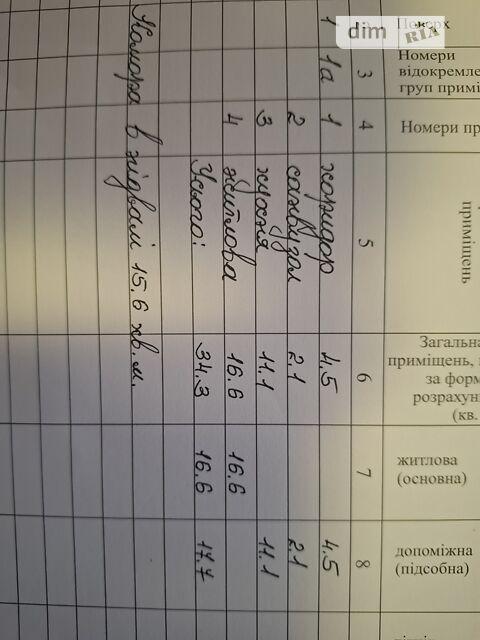 dim RIA
Поверх
Номери
відокремле
груп примі
Номери пр
приміщень
Загальна
приміщень,
за форм
розрахун
(кв.
житлова
(основна)
допоміжна
(підсобна)
2 3 4 5 6 7 8
1 1а 1 коридор 4.5 4.5
2 санвузол 2.1 2.1
3 кухня 11.1 11.1
4 житлова 16.6 16.6
Усього: 34.3 16.6 17.7
Комора в підвалі 15.6 кв.м.